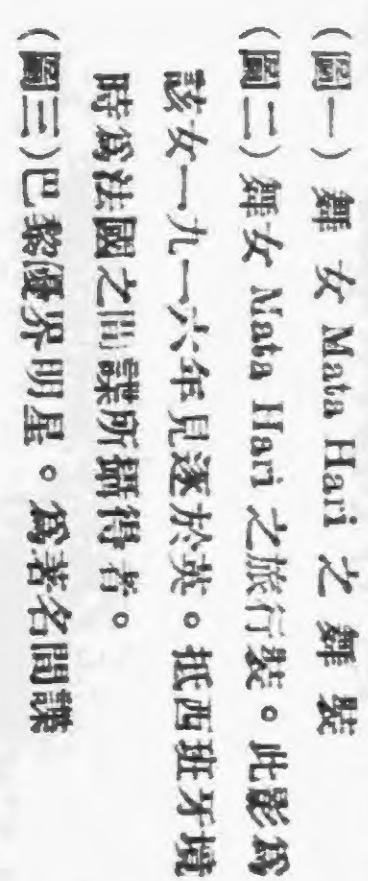 (圖一) 舞女 Mata Hari 之舞裝
(圖二) 舞女 Mata Hari 之旅行裝。此影爲
該女一九一六年見逐於英。抵西班牙境
時爲法國之間諜所攝得者。
(圖三)巴黎優界明星。爲著名間諜